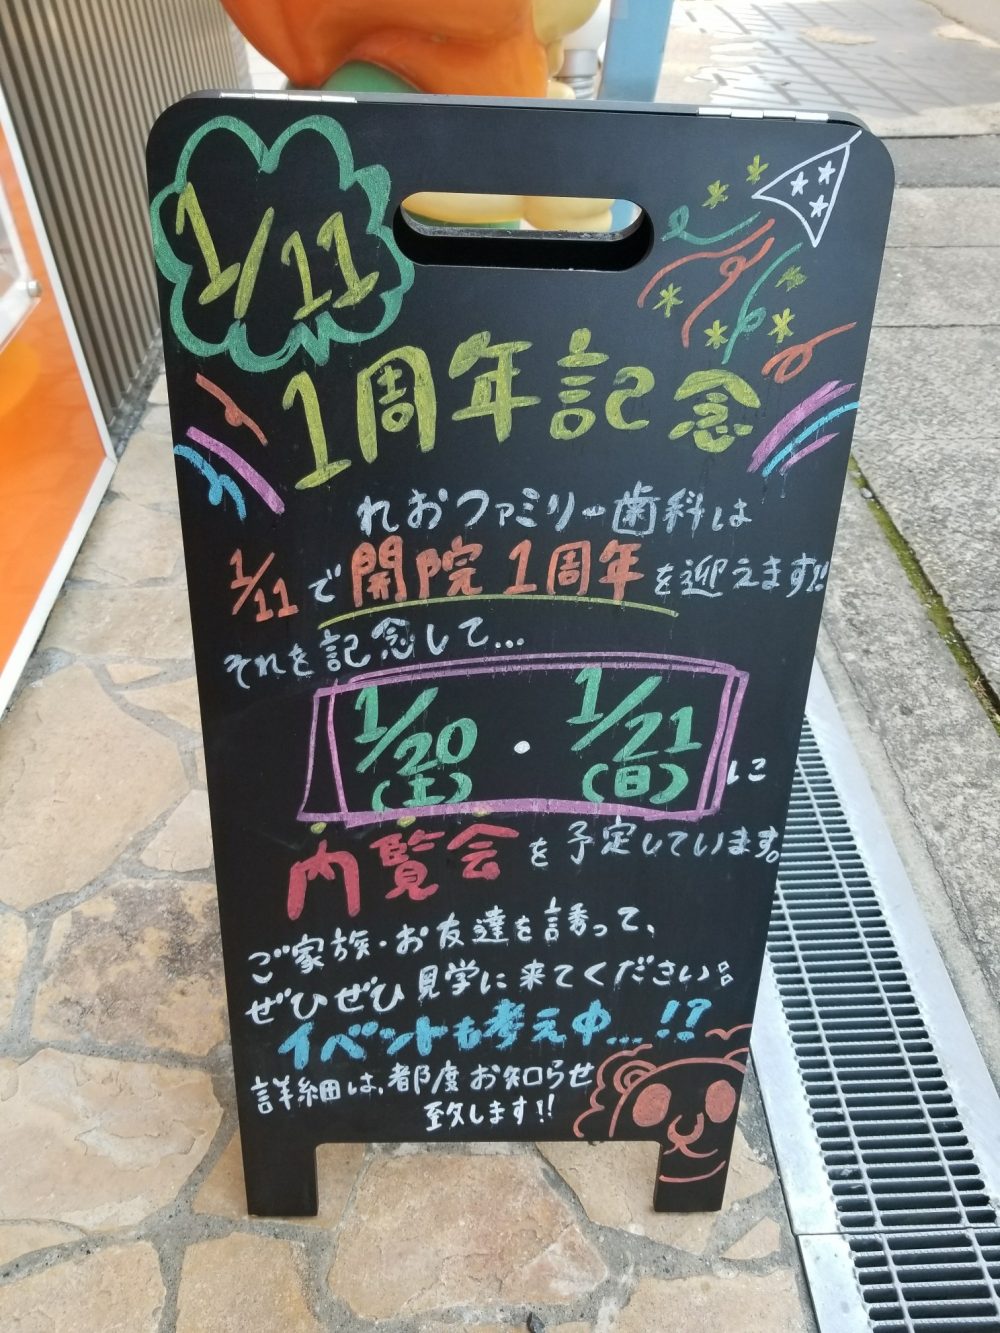 1/11
1周年記念
れおファミリー歯科は
1/11で開院1周年を迎えます!!
それを記念して...
1/20・1/21
(土) (日)に
内覧会を予定しています。
ご家族・お友達を誘って、
ぜひぜひ見学に来てください。
イベントも考え中...!?
詳細は、都度お知らせ
致します!!